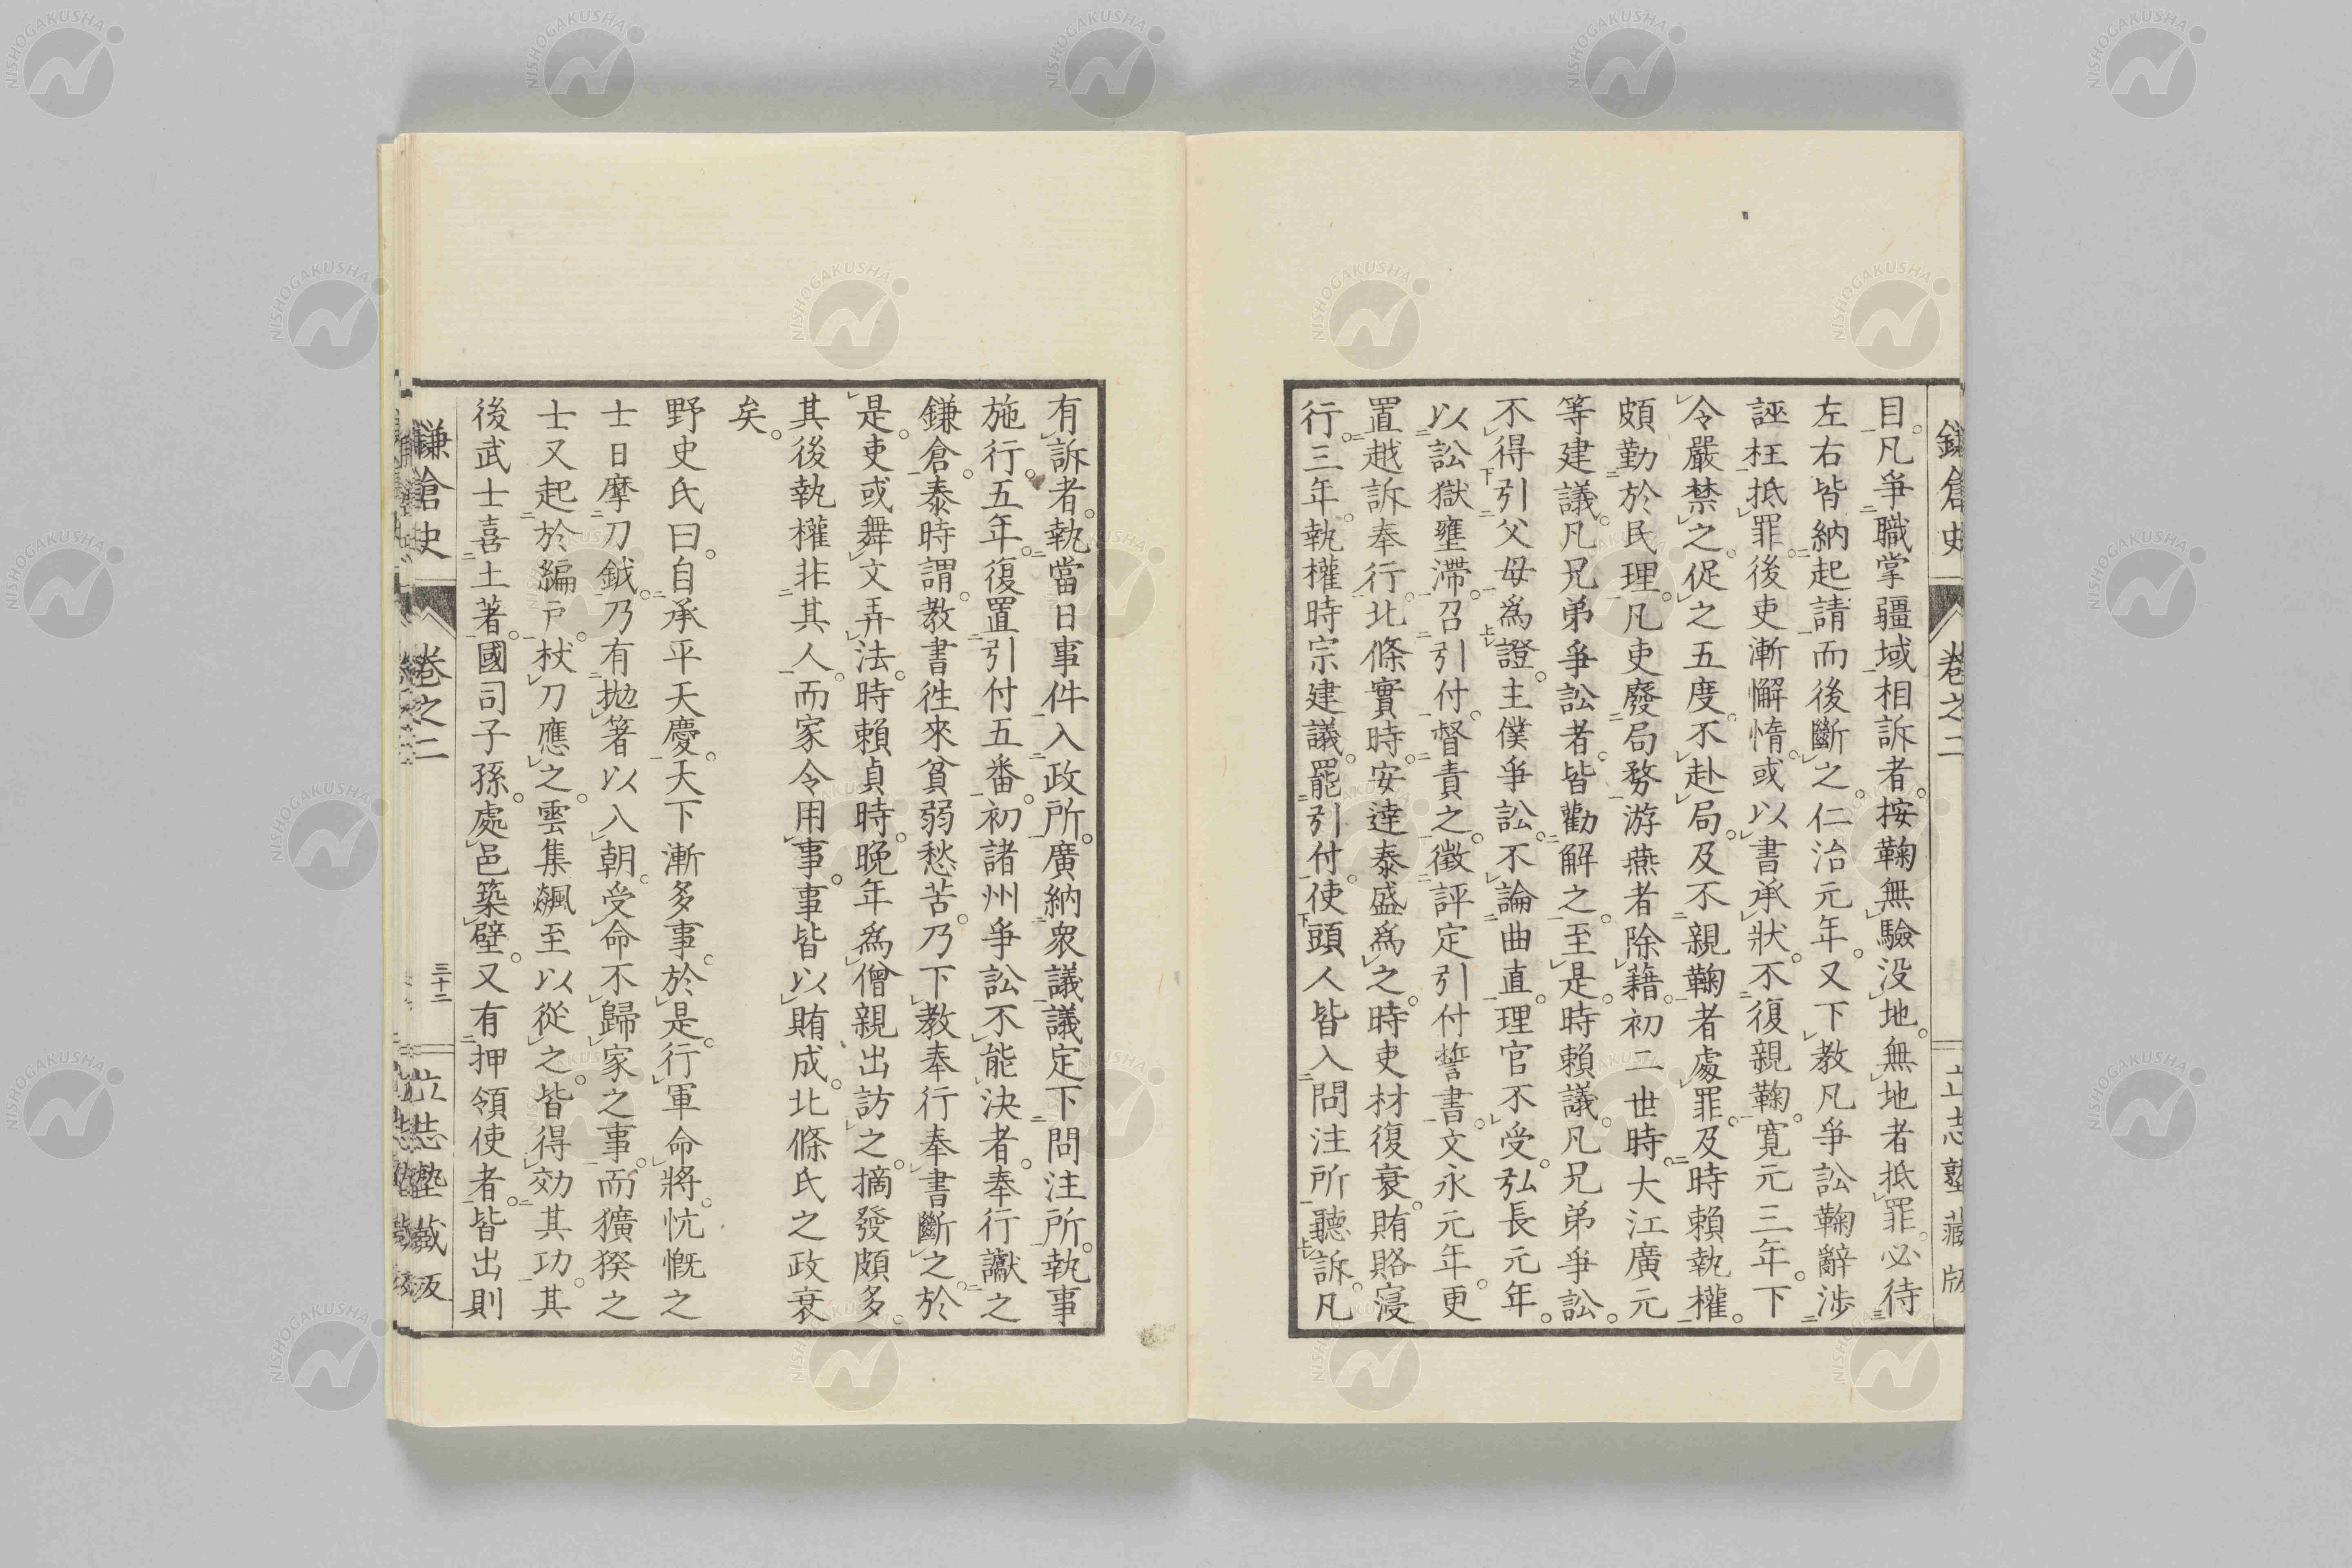 鎌倉史 卷之二 立志塾藏版
目。凡爭職掌疆域相訴者。按鞠無驗没地。無地者抵罪。必待
左右皆納起請而後斷之。仁治元年。又下教凡爭訟鞠辭涉
誣枉抵罪。後吏漸懈惰。或以書承狀。不復親鞠。寬元三年。下
令嚴禁之。促之五度。不赴局。及不親鞠者處罪。及時賴執權。
頗勤於民理。凡吏廢局務游燕者除籍。初二世時。大江廣元
等建議。凡兄弟爭訟者。皆勸解之。至是。時賴議。凡兄弟爭訟。
不得引父母爲證。主僕爭訟。不論曲直。理官不受。弘長元年。
以訟獄壅滯。召引付。督責之。徵評定引付誓書。文永元年。更
置越訴奉行。北條實時。安達泰盛爲之。時吏材復衰。賄賂寖
行。三年。執權時宗建議。罷引付。使頭人皆入問注所聽訴。凡
有訴者。執當日事件入政所。廣納衆議議定下問注所。執事
施行。五年。復置引付五番。初諸州爭訟不能決者。奉行讞之
鎌倉。泰時謂。教書徃來貧弱愁苦。乃下教奉行奉書斷之。於
是。吏或舞文弄法。時賴貞時。晚年爲僧親出訪之。摘發頗多。
其後執權非其人。而家令用事。事皆以賄成。北條氏之政衰
矣。
野史氏曰。自承平天慶。天下漸多事。於是。行軍命將。忼慨之
士日摩刀鉞。乃有拋箸以入朝。受命不歸家之事。而獷猤之
士又起於編戶。杖刀應之。雲集飆至以從之。皆得効其功。其
後武士喜土著。國司子孫。處邑築壁。又有押領使者。皆出則
鎌倉史 卷之二 三十二 立志塾藏版
NISHOGAKUSHA